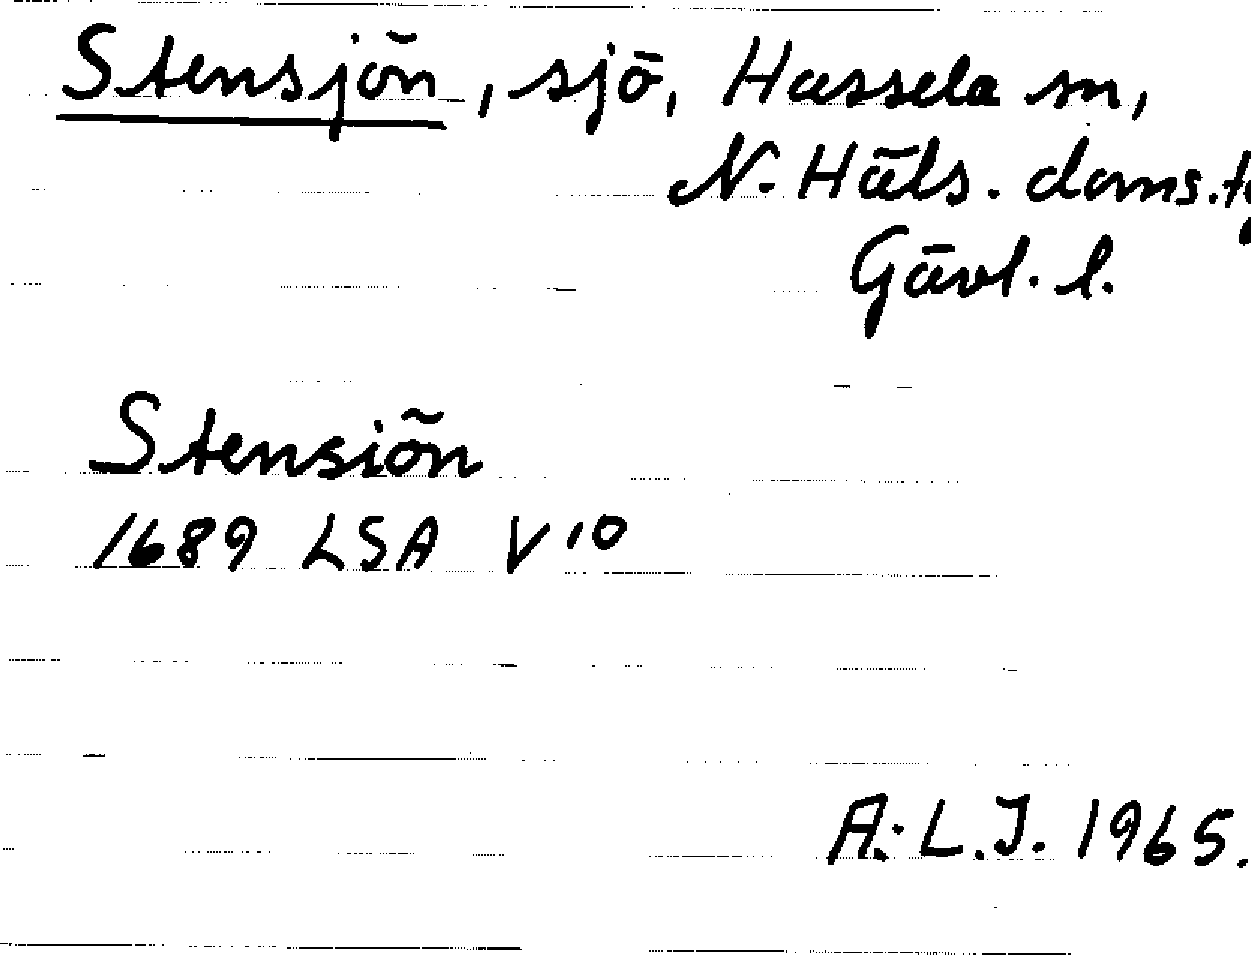 Stensjön, sjö, Hassela sn,
N. Häls. doms.
Gävl. l.
Stensiön
1689 LSA V 10
A.: L.J. 1965.